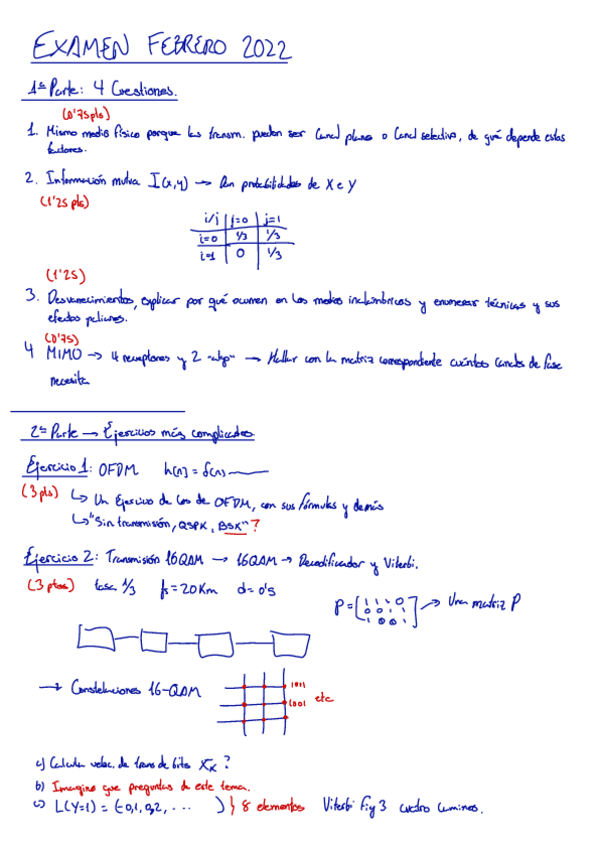 EXAMEN FEBRERO 2022
1ª Parte: 4 Cuestiones.
(0'75pts)
1. Mismo medio físico porque las transm. pueden ser Canal plano o Canal selectivo, de qué depende estos
factores.
2. Información mutua I(x,y) → Dan probabilidades de X e Y
(1'25 pts)
i/j j=0 j=1
i=0 1/3 1/3
i=1 0 1/3
(1'25)
3. Desvanecimientos, explicar por qué ocurren en los medios inalámbricos y enumerar técnicas y sus
efectos
(0'75)
4 MIMO → 4 receptores y 2 → Hallar con la matriz correspondiente cuántos canales de fase
necesita
2ª Parte → Ejercicios más complicados
Ejercicio 1: OFDM h[n] = δ(n)
(3 pts) ↳ Un Ejercicio de los de OFDM, con sus fórmulas y demás
↳ "Sin transmisión, QSPK, BSK" ?
Ejercicio 2: Transmisión 16QAM → 16QAM → Decodificador y Viterbi.
(3 ptos) tasa 1/3 fs = 20Km d = 0's
P = [ 1 1 1 0
0 0 1 1
1 0 0 1 ] → Una matriz P
→ Constelaciones 16-QAM
1011
1001 etc
a) Calcular veloc. de trans de bits ?
b) Imagino que preguntas de este tema.
c) L(Y=1) = (-0,1, 0,2, ... ) } 8 elementos Viterbi Fig 3 cuatro caminos.